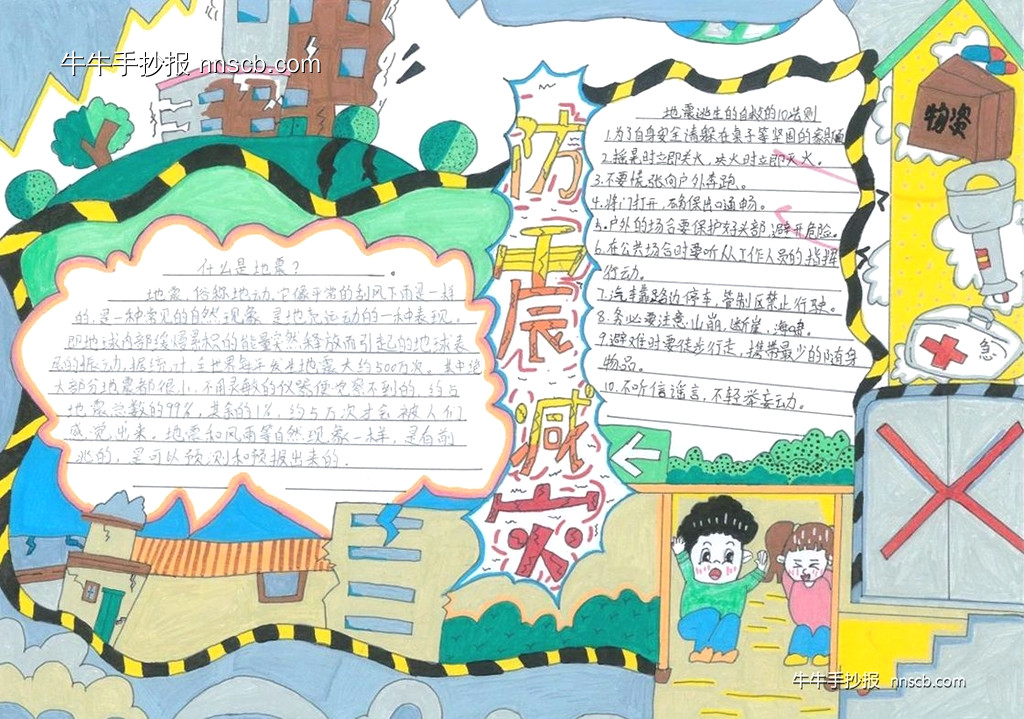 牛牛手抄报 nnscb.com
防震减灾
什么是地震?
地震,俗称地动,它像平常的刮风下雨是一样
的,是一种常见的自然现象,是地壳运动的一种表现,
即地球内部缓慢累积的能量突然释放而引起的地球表
层的振动。据统计,全世界每年发生地震大约500万次。其中绝
大部分地震都很小,不用灵敏的仪器便觉察不到的,约占
地震总数的99%,其余的1%,约5万次才会被人们
感觉出来。地震和风雨等自然现象一样,是有前
兆的,是可以预测和预报出来的.
地震逃生的自救的10法则
1.为了自身安全请躲在桌子等坚固的家具
2.摇晃时立即关火,失火时立即灭火。
3.不要慌张向户外奔跑。
4.将门打开,确保出口通畅。
5.户外的场合要保护好头部,避开危险。
6.在公共场合时要听从工作人员的指挥
行动。
7.汽车靠路边停车,管制区禁止行驶。
8.务必要注意山崩,断崖,海啸。
9.避难时要徒步行走,携带最少的随身
物品。
10.不听信谣言,不轻举妄动。
物资
急
牛牛手抄报 nnscb.com